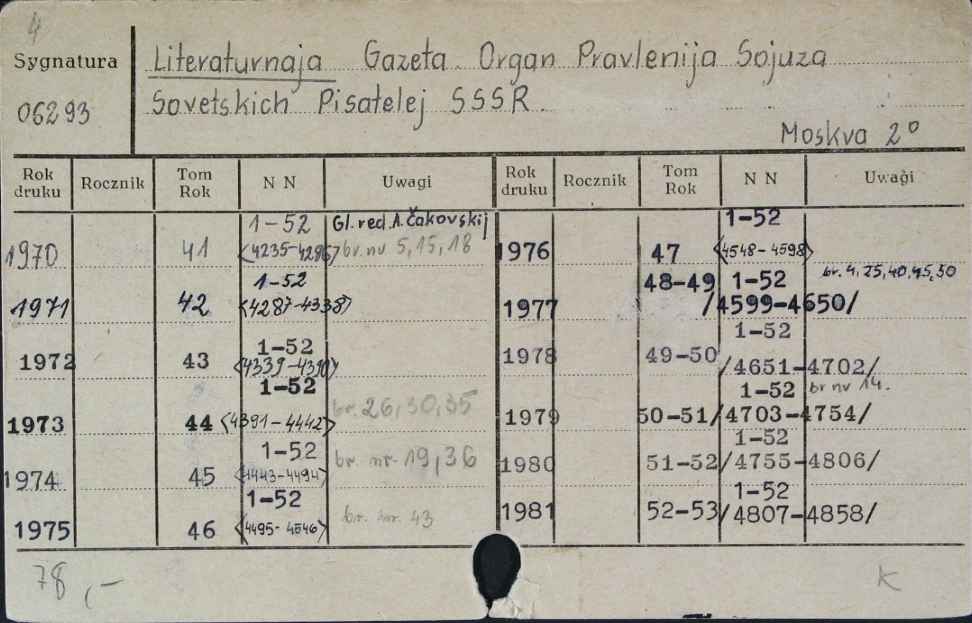 4
Sygnatura
06293
Literaturnaja Gazeta. Organ Pravlenija Sojuza
Sovetskich Pisatelej SSSR.
Moskva 2°
Rok druku Rocznik Tom Rok N N Uwagi Rok druku Rocznik Tom Rok N N Uwagi
1970 41 1-52 <4235-4286> Gl. red. A. Čakovskij br. nr 5, 15, 18
1971 42 1-52 <4287-4338>
1972 43 1-52 <4339-4390>
1973 44 1-52 <4391-4442> br. 26, 30, 35
1974 45 1-52 <4443-4494> br. nr. 19, 36
1975 46 1-52 <4495-4546> br. nr. 43
1976 47 1-52 <4548-4598>
1977 48-49 1-52 /4599-4650/ br. 4, 25, 40, 45, 50
1978 49-50 1-52 /4651-4702/
1979 50-51 1-52 /4703-4754/ br nr 14.
1980 51-52 1-52 /4755-4806/
1981 52-53 1-52 /4807-4858/
78,-
K